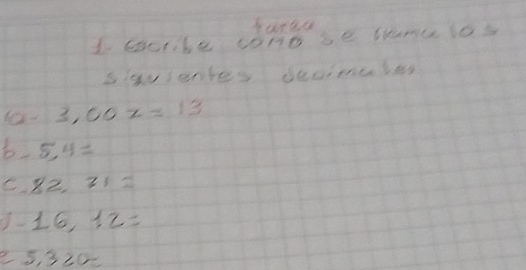 tarea
1. escribe como se suma los
siguientes decimales
a- 3,002 = 13
b- 5,4 =
c. 82, 31 =
d- 16, 12 =
e 5,320=